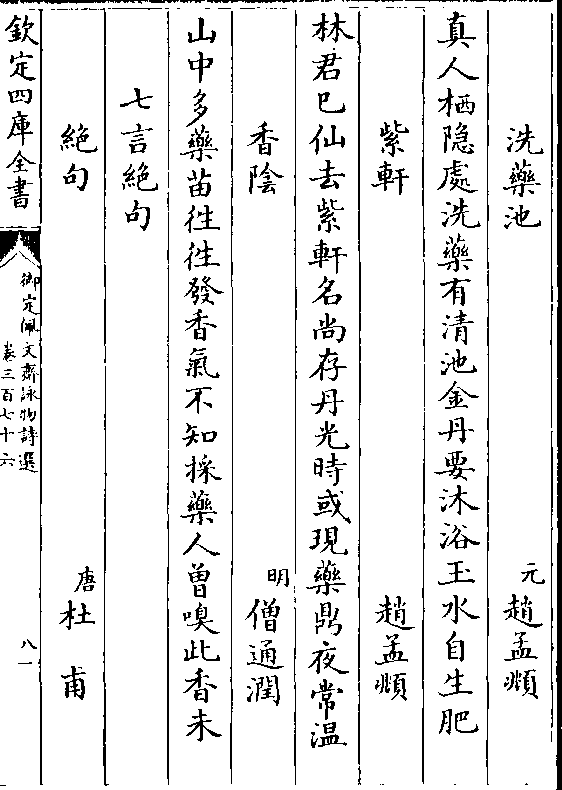 洗藥池　元趙孟頫
真人栖隐處洗藥有清池金丹要沐浴玉水自生肥
紫軒　趙孟頫
林君已仙去紫軒名尚存丹光時或現藥鼎夜常温
香陰　明僧通潤
山中多藥苗徃徃發香氣不知採藥人曽嗅此香未
七言絶句
絶句　唐杜甫
欽定四庫全書　御定佩文齋詠物詩選　卷三百七十六　八